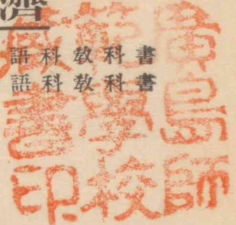 濟
語科教科書
語科教科書
廣島師
範學校
藏書印